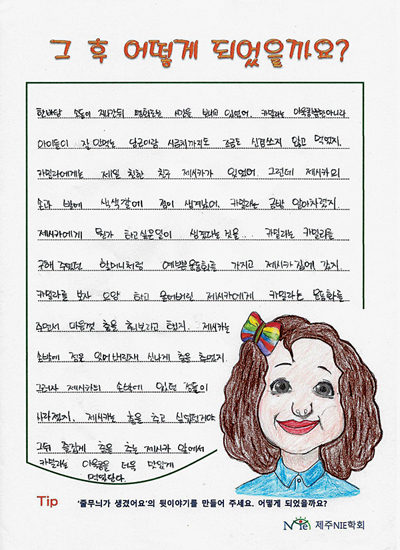 그 후 어떻게 되었을까요?
한바탕 소동이 지나간뒤 평화로운 나날을 보내고 있었어. 카밀라는 아욱콩뿐만아니라
아이들이 잘 안먹는 당근이랑 시금치까지도 조금도 신경쓰지 않고 먹었지.
카밀라에게는 제일 친한 친구 제시카가 있었어. 그런데 제시카의
손과 발에 색색깔의 점이 생겨났어. 카밀라는 금방 알아차렸지.
제시카에게 뭔가 하고싶은일이 생겼다는 것을... 카밀라는 카밀라를
구해 주었던 할머니처럼 예쁜운동화를 가지고 제시카집에 갔지.
카밀라를 보자 으앙 하고 울어버린 제시카에게 카밀라는 운동화를
주면서 마음껏 춤을 춰보라고 했지. 제시카는
손발에 점은 잊어버린채 신나게 춤을 추었지.
그러자 제시카의 손발에 있던 점들이
사라졌지. 제시카는 춤을 추고 싶었던거야
그뒤 즐겁게 춤을 추는 제시카 앞에서
카밀라는 아욱콩을 더욱 맛있게
먹었단다.
Tip '줄무늬가 생겼어요'의 뒷이야기를 만들어 주세요. 어떻게 되었을까요?
NIE 제주NIE학회